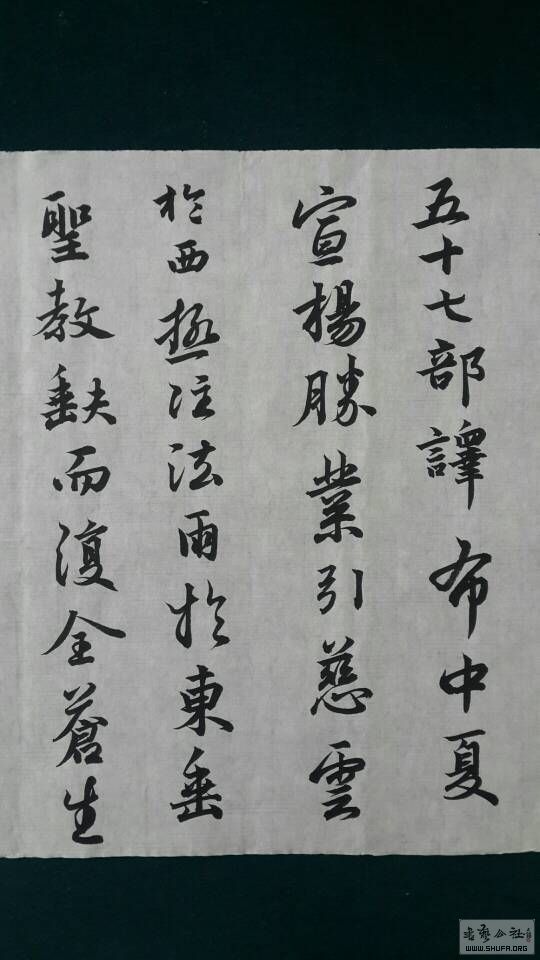 五十七部譯布中夏
宣揚勝業引慈雲
於西極注法雨於東垂
聖教缺而復全蒼生
書艺公社
WWW.SHUFA.ORG